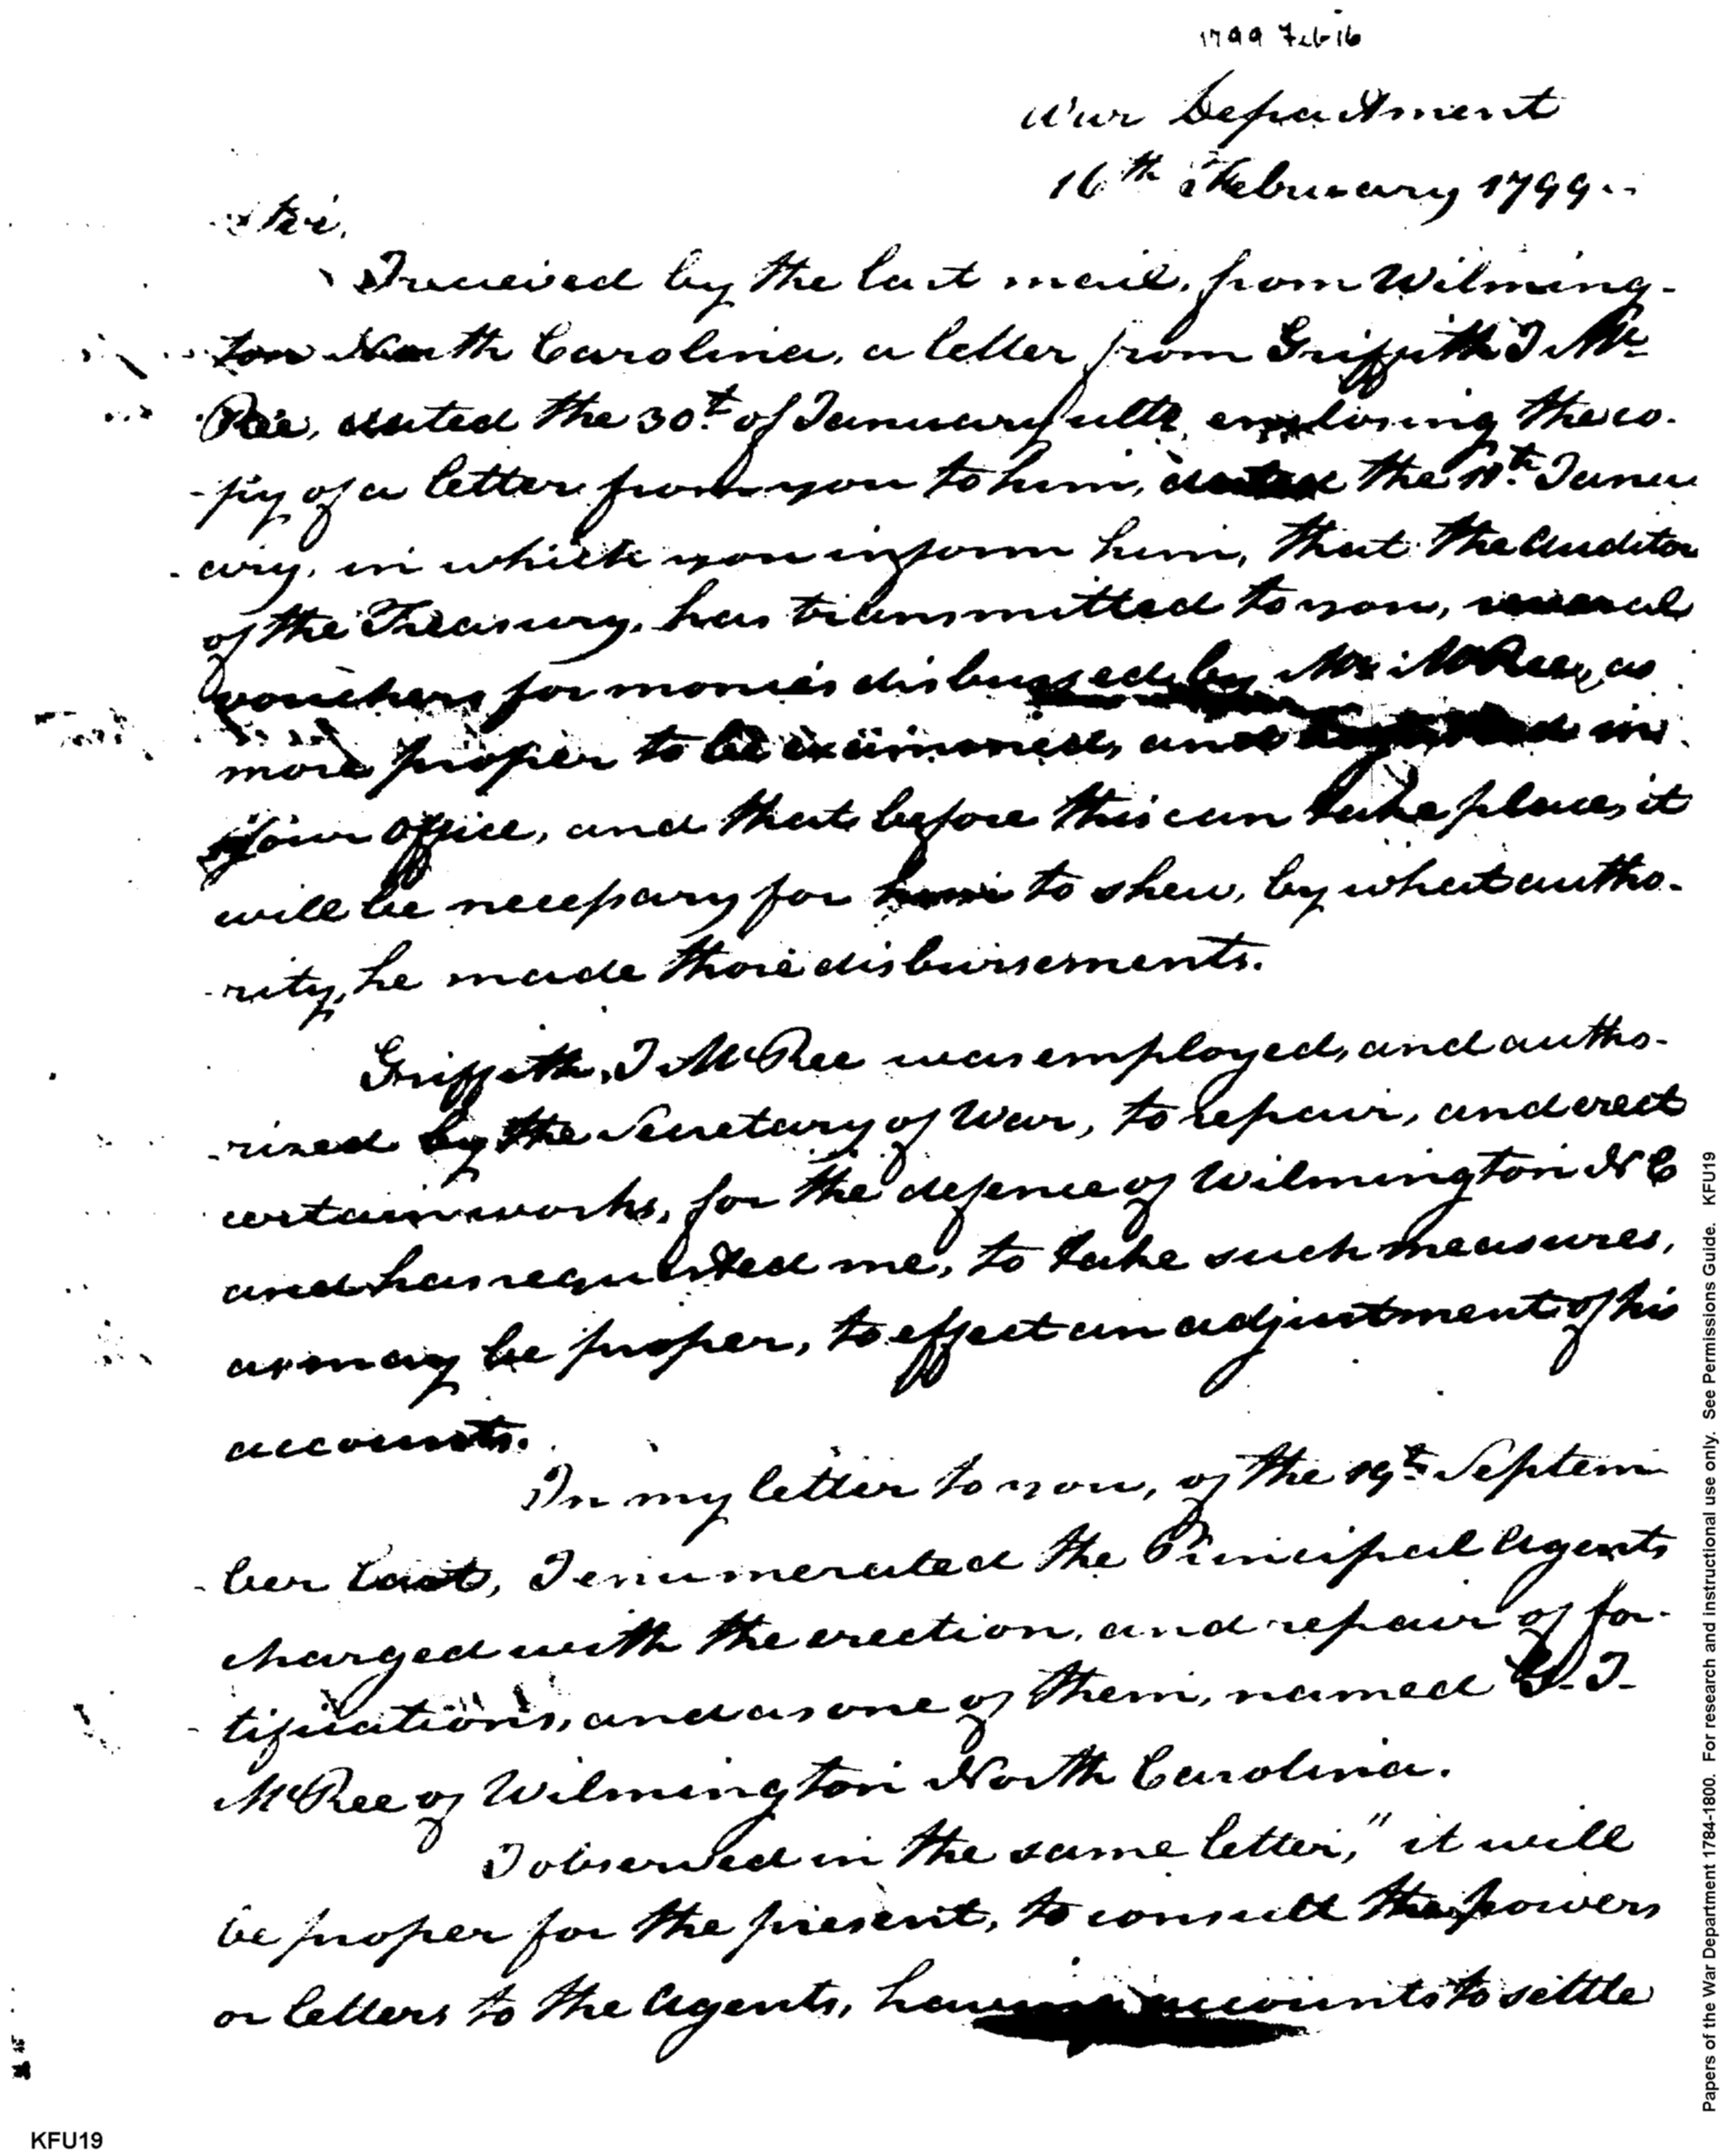 1799 Feb 16
War Department
16th February 1799.
Sir,
I received by the last mail, from Wilming-
ton North Carolina, a letter from Griffith J Mc-
Ree, dated the 30t. of January ulto, enclosing the co-
-py of a letter from you to him, dated the 11th. Janu
-ary, in which you inform him, that the Auditor
of the Treasury, has transmitted to you, several
vouchers for monies disbursed by Mr McRee, as
more proper to be examined, and in
your office, and that before this can take place, it
will be necessary for him to shew, by what autho-
-rity, he made those disbursements.
Griffith, J McRee was employed, and autho-
-rized by the Secretary of War, to repair, and erect
certain works, for the defence of Wilmington N C
and has requested me, to take such measures,
as may be proper, to effect an adjustment of his
accounts.
In my letter to you, of the 19th Septem
-ber last, I enumerated the Principal Agents
charged with the erection, and repair of for-
-tifications, and as one of them, named G. J.
McRee of Wilmington North Carolina.
I observed in the same letter, "it will
be proper for the present, to consult the powers
or letters to the Agents, having accounts to settle
KFU19
Papers of the War Department 1784-1800. For research and instructional use only. See Permissions Guide. KFU19